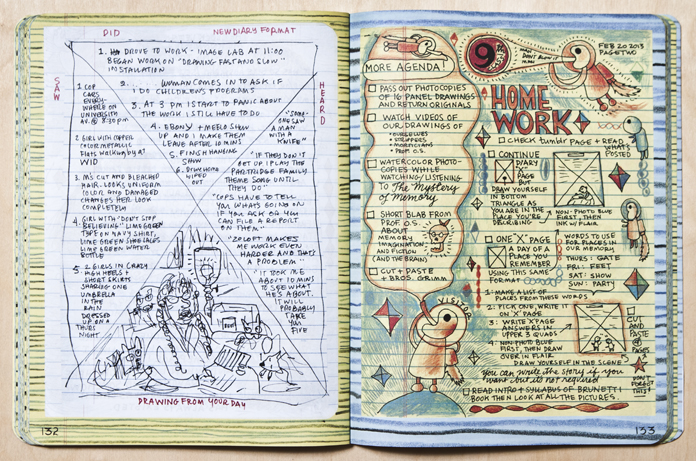 DID
NEW DIARY FORMAT
1. DROVE TO WORK - IMAGE LAB AT 11:00
BEGAN WORK ON "DRAWING FAST AND SLOW"
INSTALLATION
2... WOMAN COMES IN TO ASK IF
I DO CHILDREN'S PROGRAMS
3. AT 3 PM I START TO PANIC ABOUT
THE WORK I STILL HAVE TO DO
4. EBONY + MELO SHOW
UP AND I MAKE THEM
LEAVE AFTER 10 MINS
5. FINISH HANGING
SHOW
6. DRIVE HOME
WIPED OUT
SAW
1. COP
CARS
EVERY-
WHERE ON
UNIVERSITY
AV. @ 8:30 PM
2. GIRL WITH COPPER
COLOR METALLIC
FLATS WALKING BY AT
WID
3. M'S CUT AND BLEACHED
HAIR. LOOKS UNIFORM
COLOR AND DAMAGED
CHANGES HER LOOK
COMPLETELY
4. GIRL WITH "DON'T STOP
BELIEVING" LIME GREEN
TYPE ON NAVY SHIRT,
LIME GREEN SHOE LACES
LIME GREEN WATER
BOTTLE
5. 2 GIRLS IN CRAZY
HIGH HEELS +
SHORT SKIRTS
SHARING ONE
UMBRELLA
IN THE
RAIN
DRESSED
UP ON A
THURS
NIGHT
HEARD
"SOME-
ONE SAW
A MAN
WITH A
KNIFE"
"IF THEY DON'T
GET UP I PLAY THE
PARTRIDGE FAMILY
THEME SONG UNTIL
THEY DO"
"COPS HAVE TO TELL
YOU WHAT'S GOING ON
IF YOU ASK OR YOU
CAN FILE A REPORT
ON THEM"
"ZOLOFT MAKES
ME WORK EVEN
HARDER AND THAT'S
A PROBLEM"
"IT TOOK ME
ABOUT 10 MINS
TO SEE WHAT
HE'S ABOUT.
IT WILL
PROBABLY
TAKE
YOU
FIVE
DRAWING FROM YOUR DAY
132
MORE AGENDA!
PASS OUT PHOTOCOPIES
OF 16-PANEL DRAWINGS
AND RETURN ORIGINALS
WATCH VIDEOS OF
OUR DRAWINGS OF
• OURSELVES
• STRIPPERS
• MORTICIANS
• PROF. O.S.
WATERCOLOR PHOTO-
COPIES WHILE
WATCHING/LISTENING
TO The Mystery
of Memory
SHORT BLAB FROM
PROF. O.S.
ABOUT
MEMORY
IMAGINATION
AND FICTION
AND THE BRAIN
CUT + PASTE
+ BROS. GRIMM
VISITOR
9
FEB 20 2013
PAGE TWO
HOME
WORK
CHECK tumblr PAGE + READ
WHAT'S
POSTED
CONTINUE
DIARY
PAGE
BUT
DRAW
YOURSELF
IN BOTTOM
TRIANGLE AS IF
YOU ARE IN THE
PLACE YOU'RE
DESCRIBING
NON-PHOTO BLUE
FIRST, THEN
INK W/ FLAIR
ONE 'X' PAGE
A DAY OF A
PLACE YOU
REMEMBER
USING THIS SAME
FORMAT
WORDS TO USE
FOR PLACES IN
OUR MEMORY
THURS: GATE
FRI: FEET
SAT: SHOW
SUN: PARTY
1. MAKE A LIST OF
PLACES FROM THESE WORDS
2. PICK ONE WRITE IT
ON 'X' PAGE
3. WRITE X PAGE
ANSWERS IN
UPPER 3 QUADS
4. NON-PHOTO BLUE
FIRST, THEN DRAW
OVER IN FLAIR
DRAW YOURSELF IN THE SCENE
CUT
AND
PASTE
PAGES
DON'T
FORGET
THIS!
You can write the story if you
want but it's not required
READ INTRO + SYLLABUS OF BRUNETTI
BOOK THEN LOOK AT ALL THE PICTURES.
133